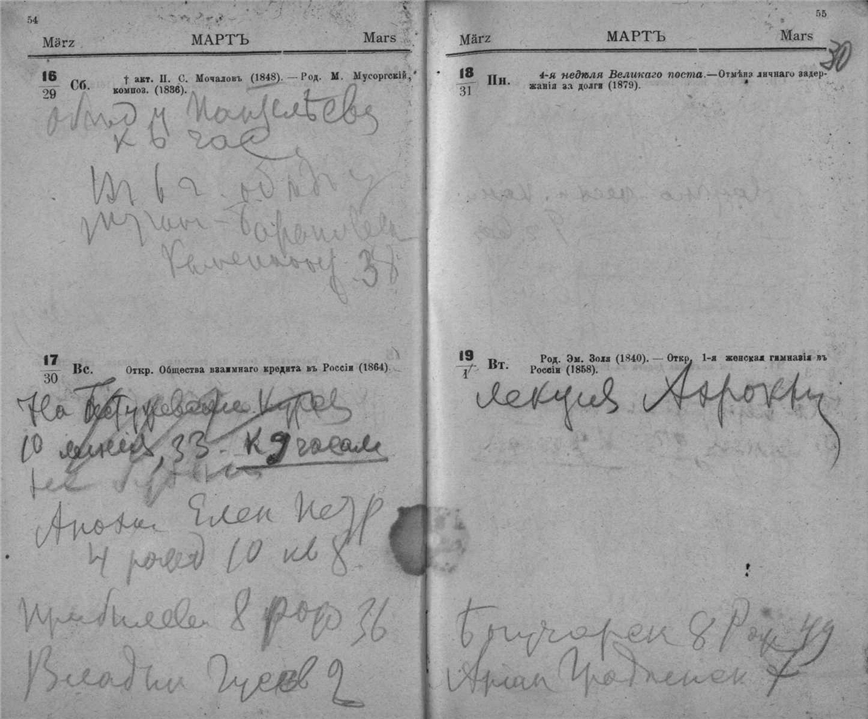 54
März МАРТЪ Mars
16
29
Сб.
† акт. П. С. Мочаловъ (1848). — Род. М. Мусоргскій,
композ. (1836).
обед у Пантелѣева
к 6 час
В 6 ч. обѣд у
Туган-Барановск
38
17
30
Вс.
Откр. Общества взаимнаго кредита въ Россіи (1864)
На Бестужевские Курсы
10 линія, 33 - к 9 часам
Елен Петр
4 рожд 10 кв 8
Прибылева 8 рожд 36
Владим Гусев 2
55
März МАРТЪ Mars
30
18
31
Пн.
4-я недѣля Великаго поста. — Отмѣна личнаго задер-
жанія за долги (1879).
19
1
Вт.
Род. Эм. Золя (1840). — Откр. 1-я женская гимназія въ
Россіи (1858).
лекция
8 Рож 49
Ариан Гродненск 7